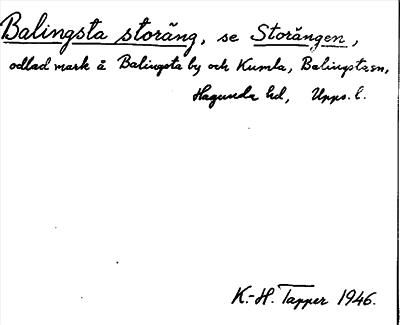 Balingsta storäng, se Storängen,
odlad mark å Balingsta by och Kumla, Balingsta sn,
Hagunda hd, Upps. l.
K.-H. Tapper 1946.